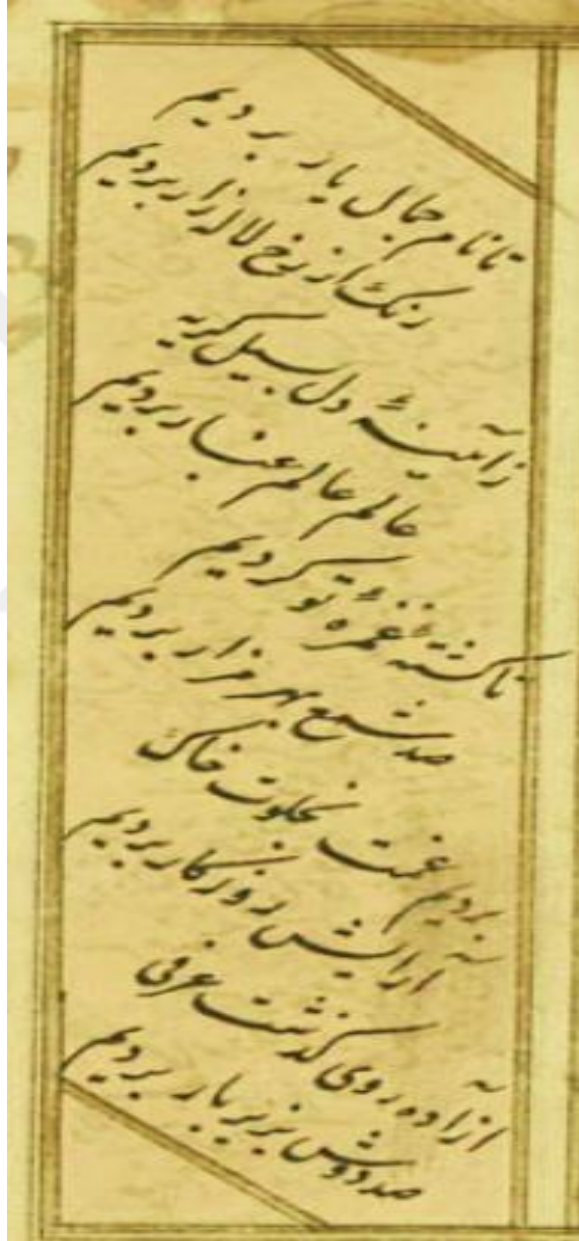 تا نام جمال یار بردیم
رنک از رخ لاله زار بردیم
ز آیینهٔ دل بسیل کریه
عالم عالم غبار بردیم
تا کشتهٔ غمزهٔ تو کردیم
صد شمع بهر مزار بردیم
بردیم غمت بخلوت خاک
آرایش روزکار بردیم
از آده روی کذشت عرفی
صد دوش بزیر بار بردیم